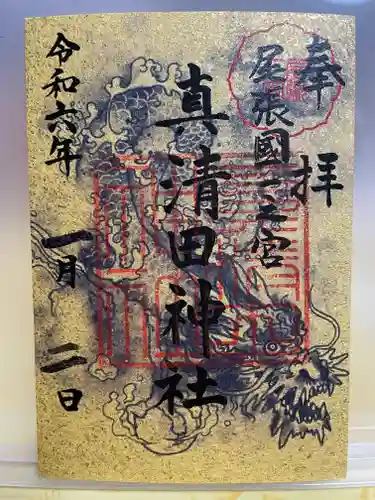 奉拝
尾張國一之宮
真清田神社
令和六年
一月
二日